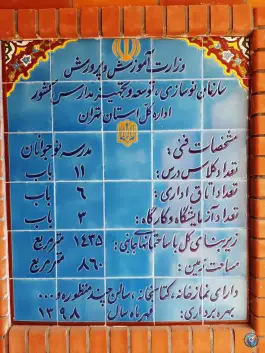 وزارت آموزش و پرورش
سازمان نوسازی، توسعه و تجهیز مدارس کشور
اداره کل استان تهران
مشخصات فنی: مدرسه نوجوانان
تعداد کلاس درس: ۱۱ باب
تعداد اتاق اداری: ۶ باب
تعداد آزمایشگاه و کارگاه: ۳ باب
زیربنای کل با ساختمانهای جانبی: ۱۴۳۵ مترمربع
مساحت زمین: ۸۶۰ مترمربع
دارای نمازخانه، کتابخانه، سالن چند منظوره و ...
بهره برداری: مهر ماه سال ۱۳۹۸